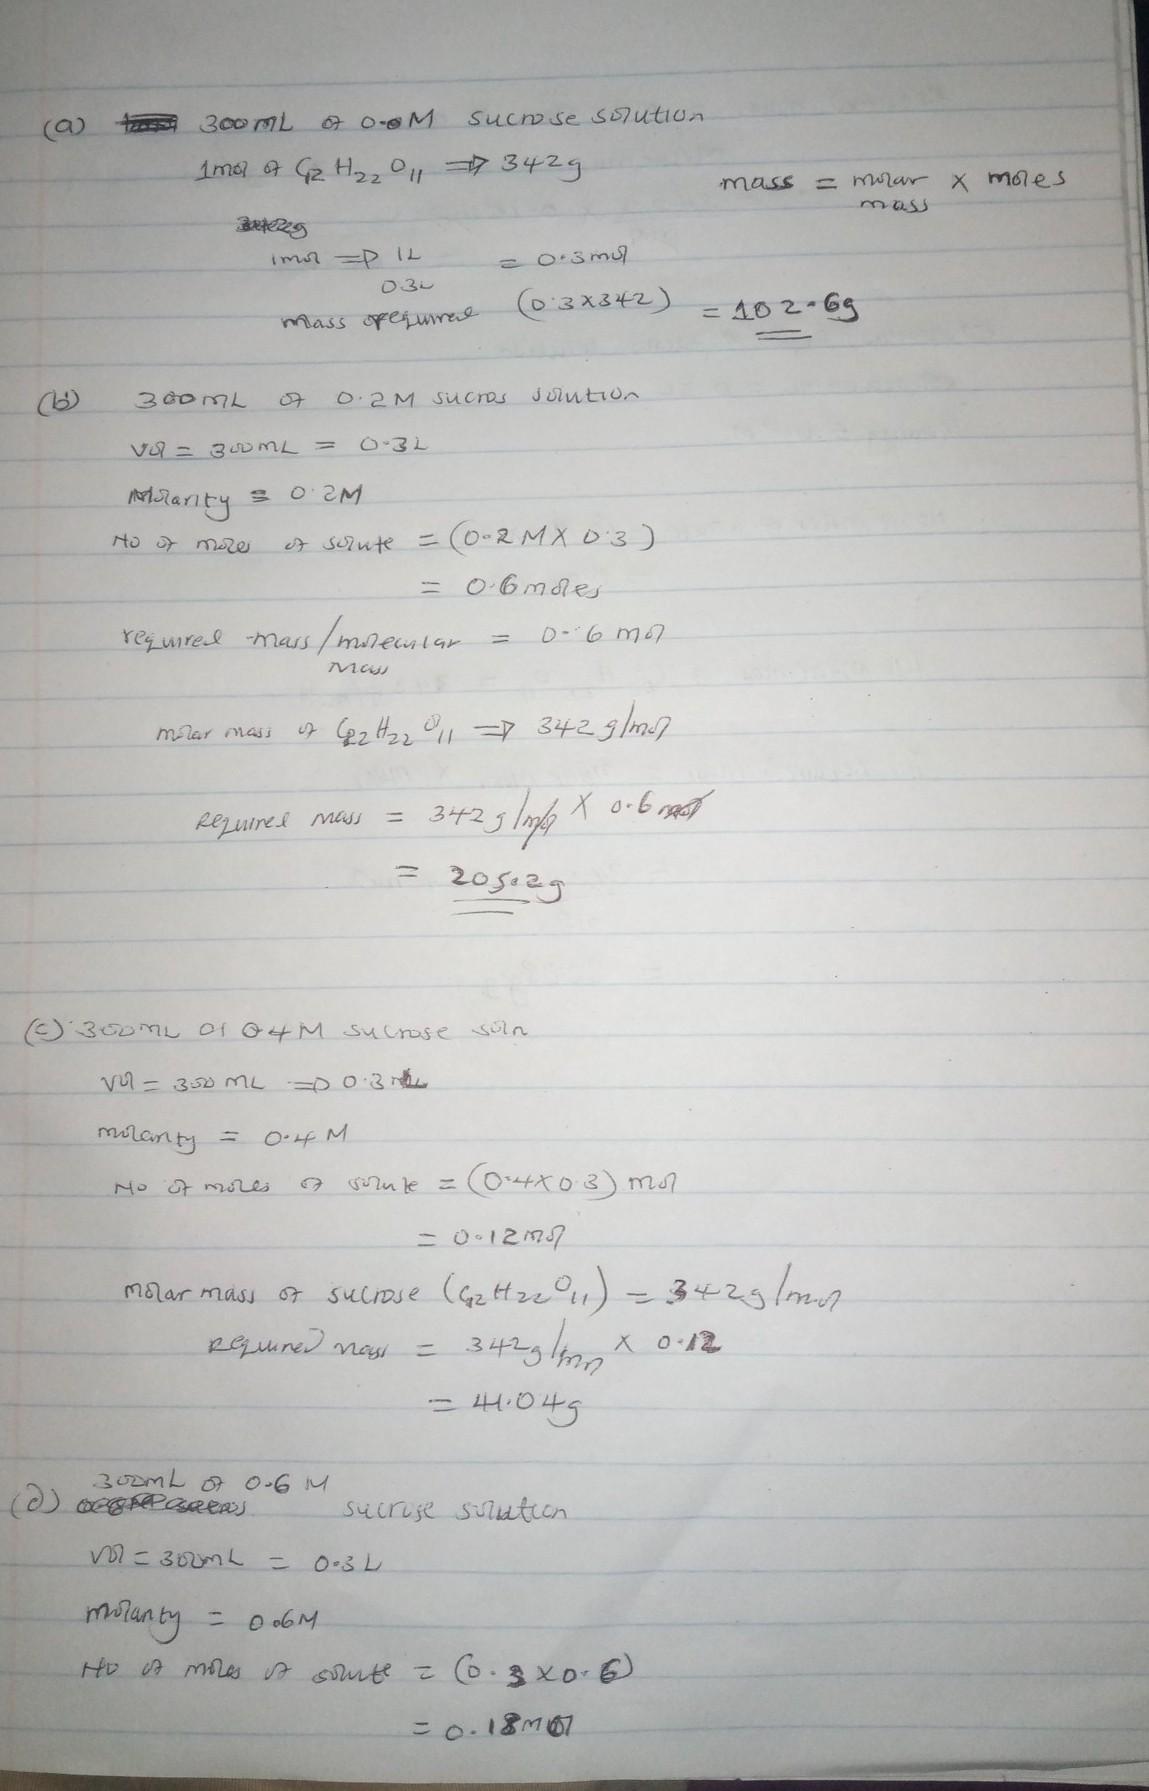 (a) 300mL of 0.0M sucrose solution
1mol of C12 H22 O11 => 342g
mass = molar mass x moles
1mol => 1L = 0.3mol
0.3L
mass required (0.3x342) = 102.6g
(b) 300mL of 0.2M sucros solution
Vol = 300mL = 0.3L
Molarity = 0.2M
No of moles of solute = (0.2MX0.3)
= 0.6moles
required mass/molecular mass = 0.6mol
molar mass of C12H22O11 => 342g/mol
Required mass = 342g/mol X 0.6mol
= 205.2g
(c) 300mL of 0.4M sucrose soln
Vol = 300mL => 0.3L
molarity = 0.4M
No of moles of solute = (0.4X0.3)mol
= 0.12mol
molar mass of sucrose (C12H22O11) = 342g/mol
Required mass = 342g/mol X 0.12
= 41.04g
300mL of 0.6M
(d) sucrose solution
Vol = 300mL = 0.3L
molarity = 0.6M
No of moles of solute = (0.3X0.6)
= 0.18mol